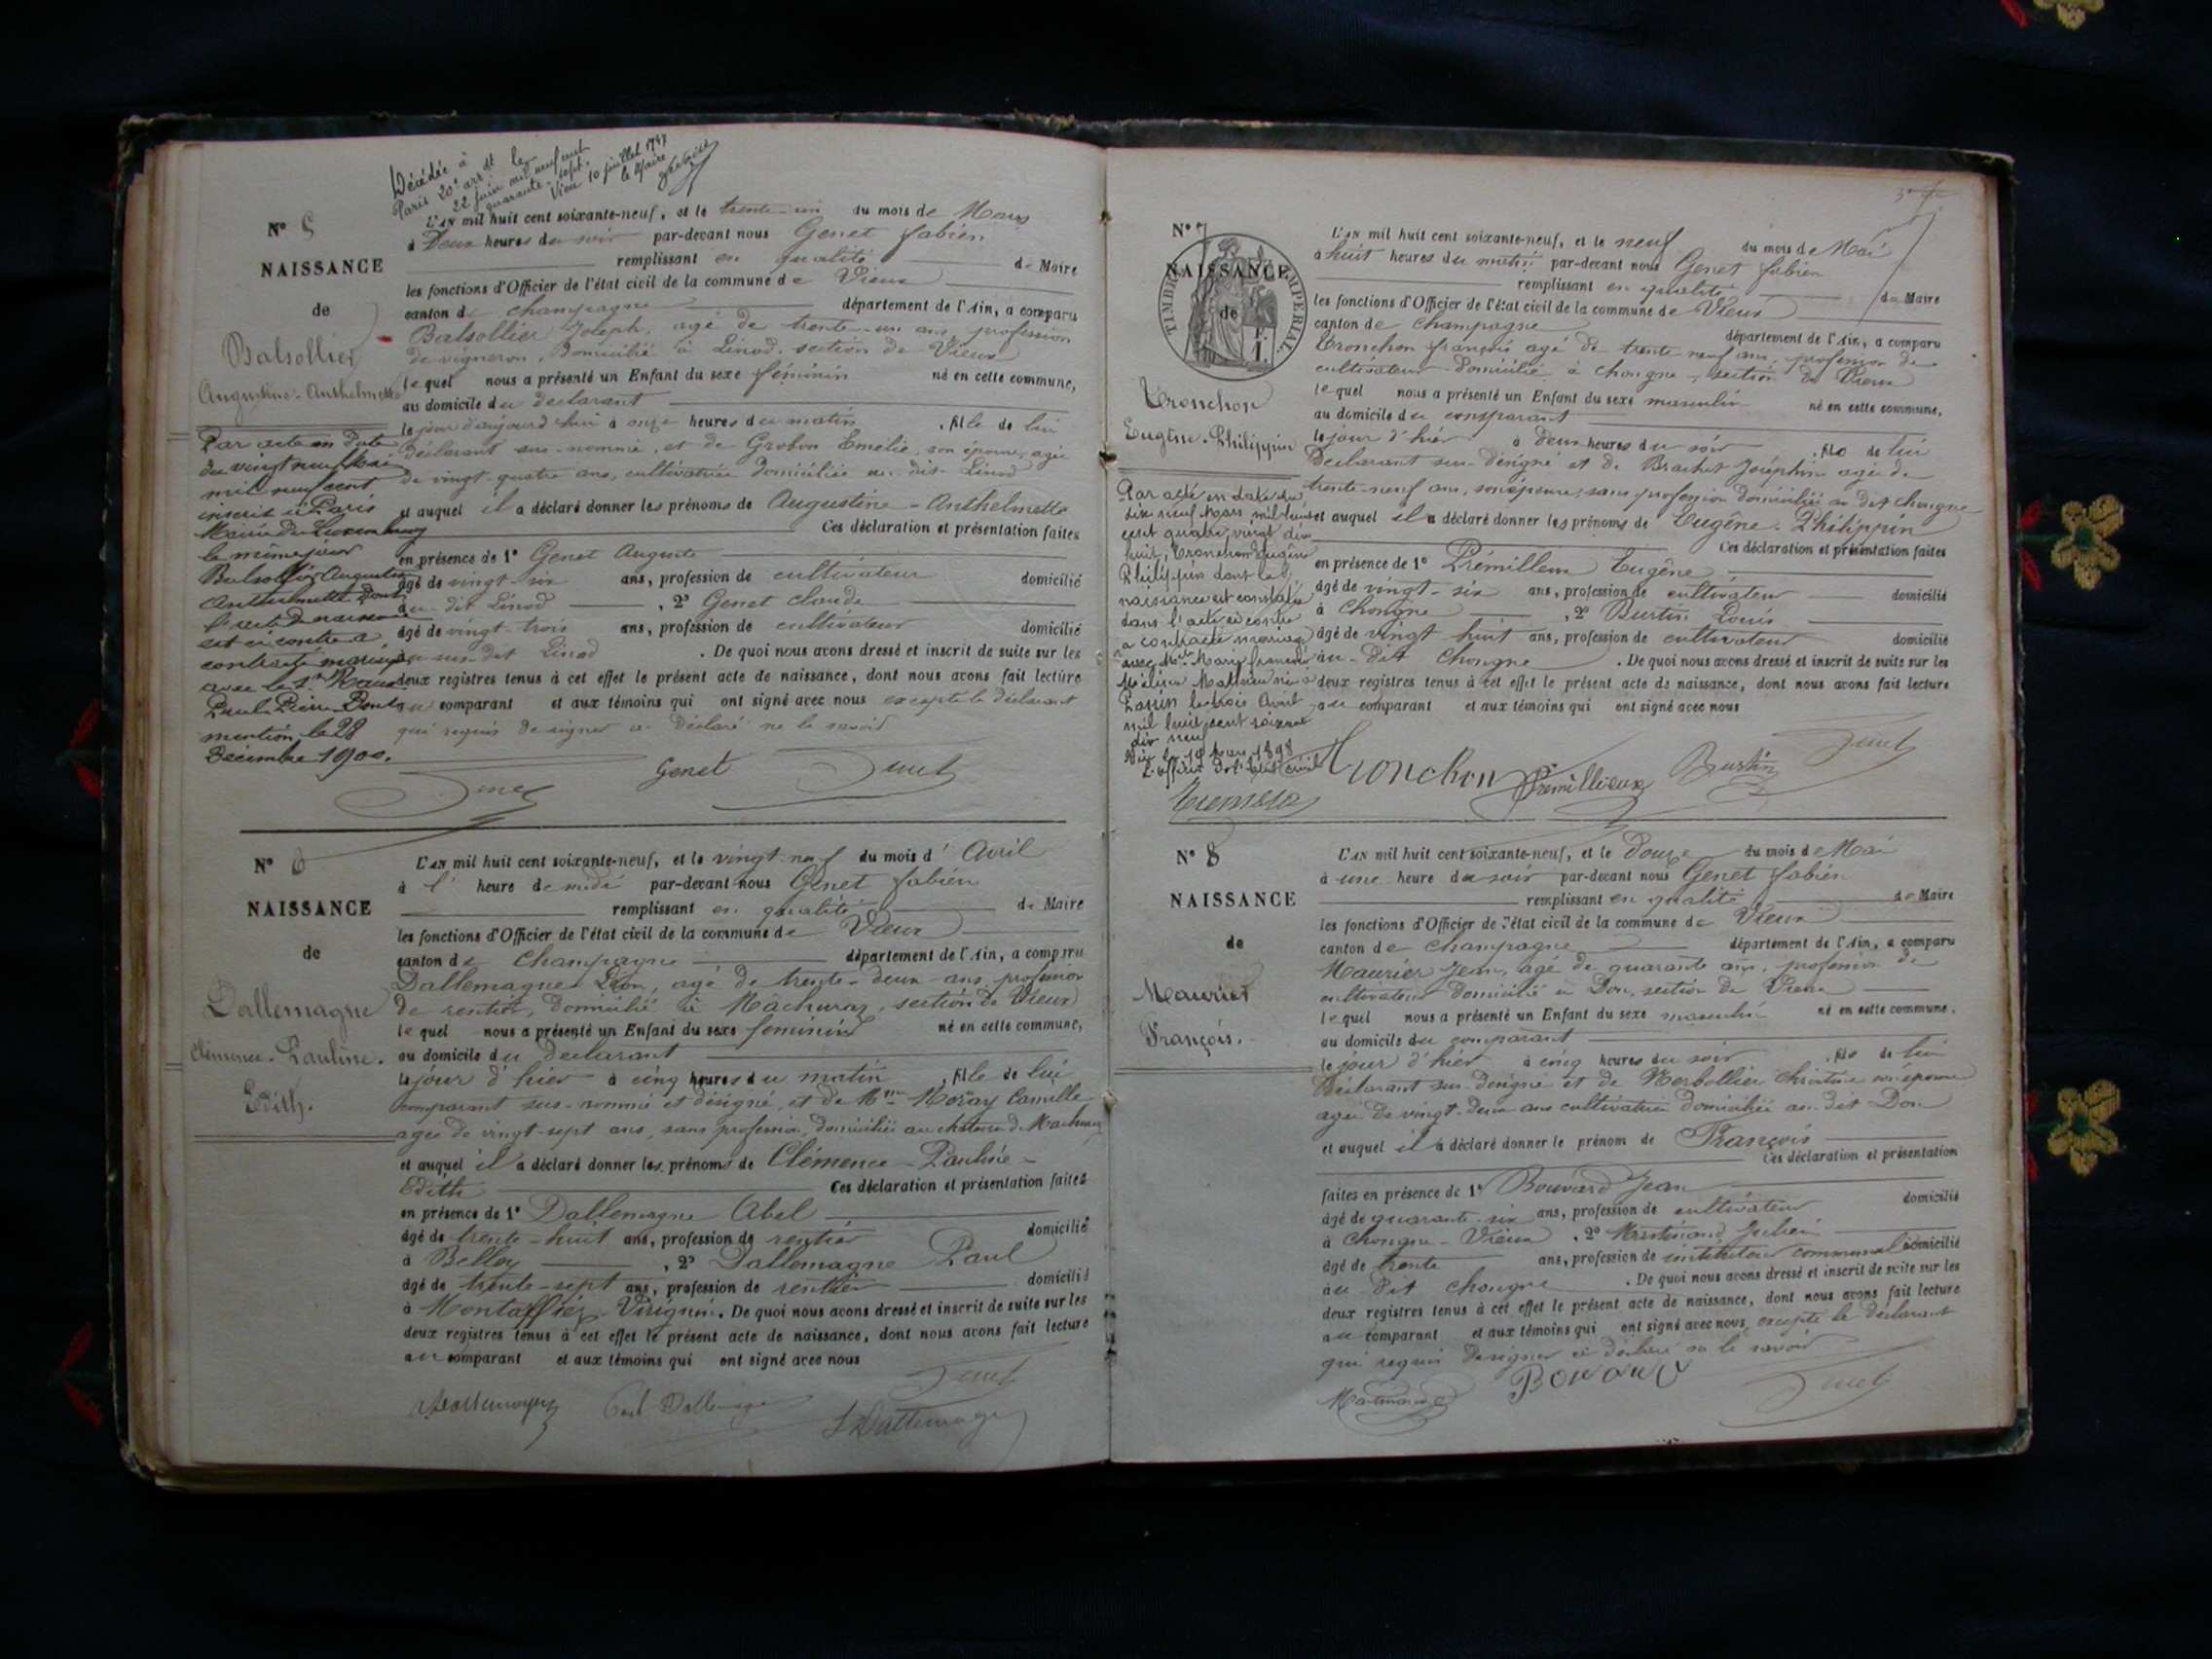 Décédée à
Paris 20e arrdt le
22 juin mil neuf cent
quarante-sept.
Vieu 10 juillet 1947
le Maire
N° 5
NAISSANCE
de
Balsollier
Augustine-Anthelmette
Par acte en date
du vingt neuf Mai
mil neuf cent
inscrit à Paris
Mairie du Luxembourg
le même jour
Balsollier Augustine
Anthelmette dont
l'acte de naissance
est ci contre a
contracté mariage
avec le Sr
Paul Pierre
mention le 28
Décembre 1900.
L'AN mil huit cent soixante-neuf, et le trente-un du mois de Mars
à Deux heures du soir par-devant nous Genet fabien
remplissant en qualité de Maire
les fonctions d'Officier de l'état civil de la commune de Vieux
canton de Champagne département de l'Ain, a comparu
Balsollier Joseph, agé de trente-un ans, profession
de vigneron, Domicilié à Linod, section de Vieux
lequel nous a présenté un Enfant du sexe féminin né en cette commune,
au domicile du déclarant
le jour d'aujourd'hui à onze heures du matin, fille de lui
déclarant sus-nommé, et de Grobon Emélie, son épouse, agée
de vingt-quatre ans, cultivatrice domiciliée au dit Linod
et auquel il a déclaré donner les prénoms de Augustine-Anthelmette
Ces déclaration et présentation faites
en présence de 1° Genet Auguste
âgé de vingt-six ans, profession de cultivateur domicilié
au-dit Linod, 2° Genet Claude
âgé de vingt-trois ans, profession de cultivateur domicilié
au sus-dit Linod. De quoi nous avons dressé et inscrit de suite sur les
deux registres tenus à cet effet le présent acte de naissance, dont nous avons fait lecture
au comparant et aux témoins qui ont signé avec nous excepté le déclarant
qui requis de signer a déclaré ne le savoir
Genet Genet
Genet
N° 6
NAISSANCE
de
Dallemagne
Clémence-Pauline.
Edith.
L'AN mil huit cent soixante-neuf, et le vingt-neuf du mois d'Avril
à l'heure de midi par-devant nous Genet fabien
remplissant en qualité de Maire
les fonctions d'Officier de l'état civil de la commune de Vieux
canton de Champagne département de l'Ain, a comparu
Dallemagne Léon, agé de trente-deux ans, profession
de rentier, domicilié à Mâchuraz, section de Vieux
lequel nous a présenté un Enfant du sexe féminin né en cette commune,
au domicile du déclarant
le jour d'hier à cinq heures du matin, fille de lui
comparant sus-nommé et désigné, et de Mme Moray Camille
agée de vingt-sept ans, sans profession, domiciliée au château de Machuraz
et auquel il a déclaré donner les prénoms de Clémence-Pauline-
Edith Ces déclaration et présentation faites
en présence de 1° Dallemagne Abel
âgé de trente-huit ans, profession de rentier domicilié
à Belley, 2° Dallemagne Paul
âgé de trente-sept ans, profession de rentier domicilié
à Virignin. De quoi nous avons dressé et inscrit de suite sur les
deux registres tenus à cet effet le présent acte de naissance, dont nous avons fait lecture
au comparant et aux témoins qui ont signé avec nous
Genet
A Dallemagne Paul Dallemagne L Dallemagne
N° 7
NAISSANCE
de
TIMBRE IMPERIAL
Tronchon
Eugène-Philippin
Par acte en date du
dix neuf Mars mil huit
cent quatre vingt dix
huit, Tronchon Eugène
Philippin dont la
naissance est constatée
dans l'acte ci contre
a contracté mariage
avec Melle Marie françoise
Mathieu née à
le trois Avril
mil huit cent soixante
dix neuf
Vieu le 19 Mars 1898
L'officier de l'état civil
L'AN mil huit cent soixante-neuf, et le neuf du mois de Mai
à huit heures du matin par-devant nous Genet fabien
remplissant en qualité de Maire
les fonctions d'Officier de l'état civil de la commune de Vieux
canton de Champagne département de l'Ain, a comparu
Tronchon françois agé de trente-neuf ans, profession de
cultivateur domicilié à Chongne, section de Vieux
lequel nous a présenté un Enfant du sexe masculin né en cette commune,
au domicile du comparant
le jour d'hier à deux heures du soir, fils de lui
Déclarant sus-désigné et de Brachet Joséphine agée de
trente-neuf ans, son épouse, sans profession domiciliée au dit Chongne
et auquel il a déclaré donner les prénoms de Eugène-Philippin
Ces déclaration et présentation faites
en présence de 1° Prémillieux Eugène
âgé de vingt-six ans, profession de cultivateur domicilié
à Chongne, 2° Burtin Louis
âgé de vingt huit ans, profession de cultivateur domicilié
au-dit Chongne. De quoi nous avons dressé et inscrit de suite sur les
deux registres tenus à cet effet le présent acte de naissance, dont nous avons fait lecture
au comparant et aux témoins qui ont signé avec nous
Tronchon Prémillieux Burtin Genet
N° 8
NAISSANCE
de
Maurier
François.
L'AN mil huit cent soixante-neuf, et le Douze du mois de Mai
à une heure du soir par-devant nous Genet fabien
remplissant en qualité de Maire
les fonctions d'Officier de l'état civil de la commune de Vieux
canton de Champagne département de l'Ain, a comparu
Maurier Jean, agé de quarante ans, profession de
cultivateur domicilié à Don, section de Vieux
lequel nous a présenté un Enfant du sexe masculin né en cette commune,
au domicile du comparant
le jour d'hier à cinq heures du soir, fils de lui
Déclarant sus-désigné et de Christine son épouse
agée de vingt-deux ans cultivatrice domiciliée au-dit Don
et auquel il a déclaré donner le prénom de François
Ces déclaration et présentation
faites en présence de 1° Bouvard Jean
âgé de quarante-six ans, profession de cultivateur domicilié
à Chongne-Vieux, 2° Martinand Julien
âgé de trente ans, profession de instituteur communal domicilié
au dit Chongne. De quoi nous avons dressé et inscrit de suite sur les
deux registres tenus à cet effet le présent acte de naissance, dont nous avons fait lecture
au comparant et aux témoins qui ont signé avec nous, excepté le déclarant
qui requis de signer a déclaré ne le savoir
Martinand Bouvard Genet